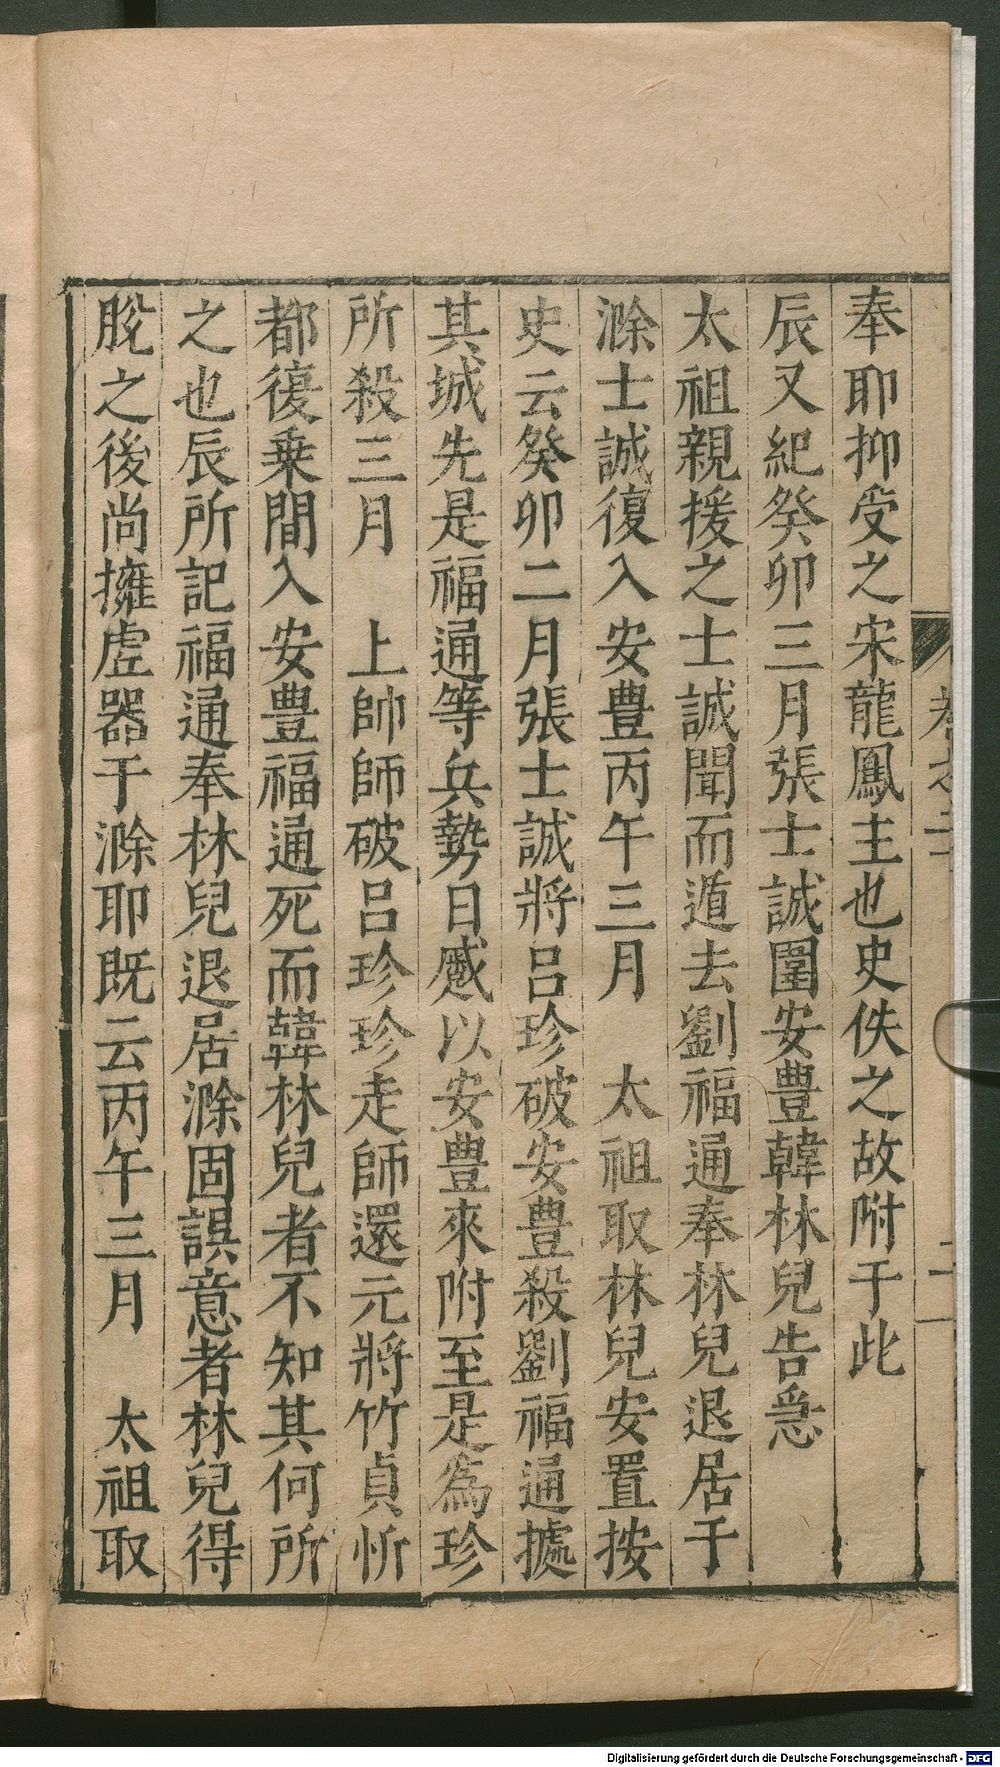 奉耶抑受之宋龍鳳主也史佚之故附于此
辰又紀癸卯三月張士誠圍安豊韓林兒告急
太祖親援之士誠聞而遁去劉福通奉林兒退居于
滁士誠復入安豊丙午三月　太祖取林兒安置按
史云癸卯二月張士誠將呂珍破安豊殺劉福通據
其城先是福通等兵勢日蹙以安豊來附至是為珍
所殺三月　上帥師破呂珍珍走師還元將竹貞忻
都復乗間入安豊福通死而韓林兒者不知其何所
之也辰所記福通奉林兒退居滁固誤意者林兒得
脫之後尚擁虛器于滁耶既云丙午三月　太祖取
Digitalisierung gefördert durch die Deutsche Forschungsgemeinschaft - DFG